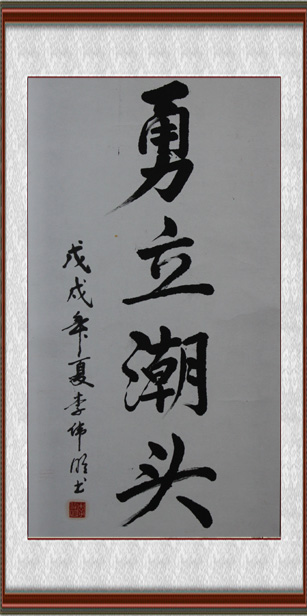 勇立潮头
戊戌年夏李伟明书